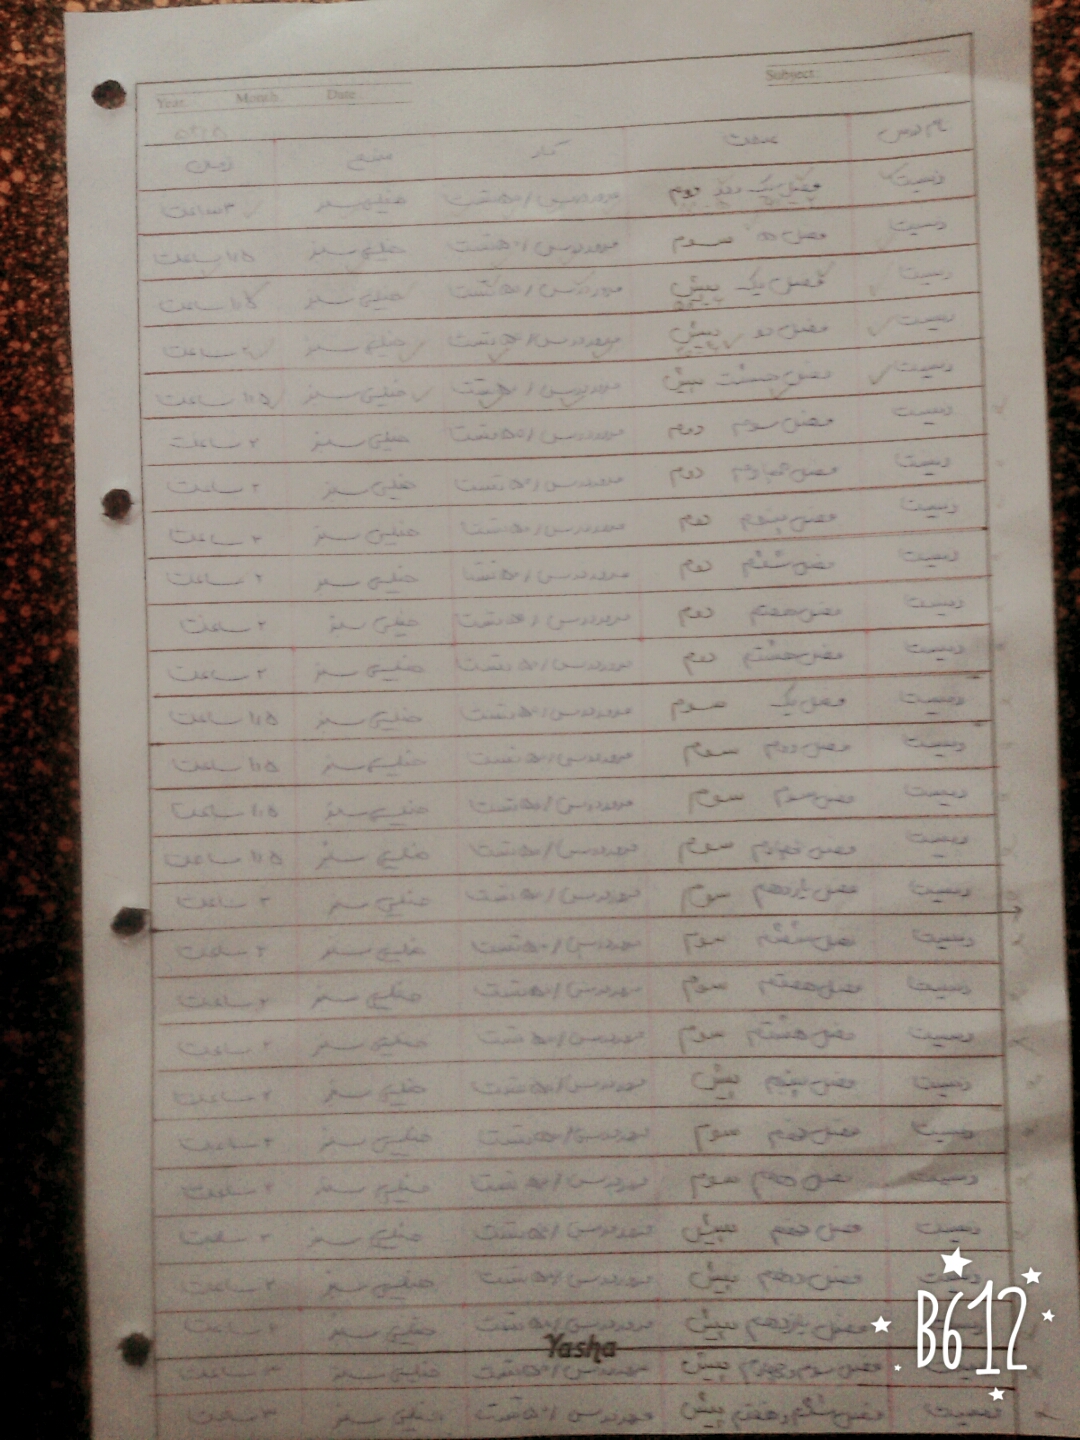 Year: Month: Date: Subject:
نام درس مبحث کار منبع زمان
زیست فصل یک دوم مرور درس / ۵۰ تست خیلی سبز ۳ ساعت
زیست سوم مرور درس / ۵۰ تست خیلی سبز ۱/۵ ساعت
زیست فصل یک پیش مرور درس / ۵۰ تست خیلی سبز ۱/۵ ساعت
زیست فصل دو پیش مرور درس / ۵۰ تست خیلی سبز ۲ ساعت
زیست فصل هشت پیش مرور درس / ۵۰ تست خیلی سبز ۱/۵ ساعت
زیست فصل سوم دوم مرور درس / ۵۰ تست خیلی سبز ۲ ساعت
زیست فصل چهارم دوم مرور درس / ۵۰ تست خیلی سبز ۲ ساعت
زیست فصل پنجم دوم مرور درس / ۵۰ تست خیلی سبز ۲ ساعت
زیست فصل ششم دوم مرور درس / ۵۰ تست خیلی سبز ۲ ساعت
زیست فصل هفتم دوم مرور درس / ۵۰ تست خیلی سبز ۲ ساعت
زیست فصل هشتم دوم مرور درس / ۵۰ تست خیلی سبز ۲ ساعت
زیست فصل یک سوم مرور درس / ۵۰ تست خیلی سبز ۱/۵ ساعت
زیست فصل دوم سوم مرور درس / ۵۰ تست خیلی سبز ۱/۵ ساعت
زیست فصل سوم سوم مرور درس / ۵۰ تست خیلی سبز ۱/۵ ساعت
زیست فصل چهارم سوم مرور درس / ۵۰ تست خیلی سبز ۱/۵ ساعت
زیست فصل یازدهم سوم مرور درس / ۵۰ تست خیلی سبز ۲ ساعت
زیست فصل ششم سوم مرور درس / ۵۰ تست خیلی سبز ۲ ساعت
زیست فصل هفتم سوم مرور درس / ۵۰ تست خیلی سبز ۲ ساعت
زیست فصل هشتم سوم مرور درس / ۵۰ تست خیلی سبز ۲ ساعت
زیست فصل پنجم پیش مرور درس / ۵۰ تست خیلی سبز ۲ ساعت
زیست فصل نهم سوم مرور درس / ۵۰ تست خیلی سبز ۲ ساعت
زیست فصل دهم سوم مرور درس / ۵۰ تست خیلی سبز ۲ ساعت
زیست فصل نهم پیش مرور درس / ۵۰ تست خیلی سبز ۲ ساعت
زیست فصل دهم پیش مرور درس / ۵۰ تست خیلی سبز ۲ ساعت
فصل یازدهم پیش مرور درس / ۵۰ تست خیلی سبز ۲ ساعت
Yasha
فصل سوم و چهارم پیش مرور درس / ۵۰ تست خیلی سبز ۳ ساعت
زیست فصل ششم و هفتم پیش مرور درس / ۵۰ تست خیلی سبز ۳ ساعت
B612